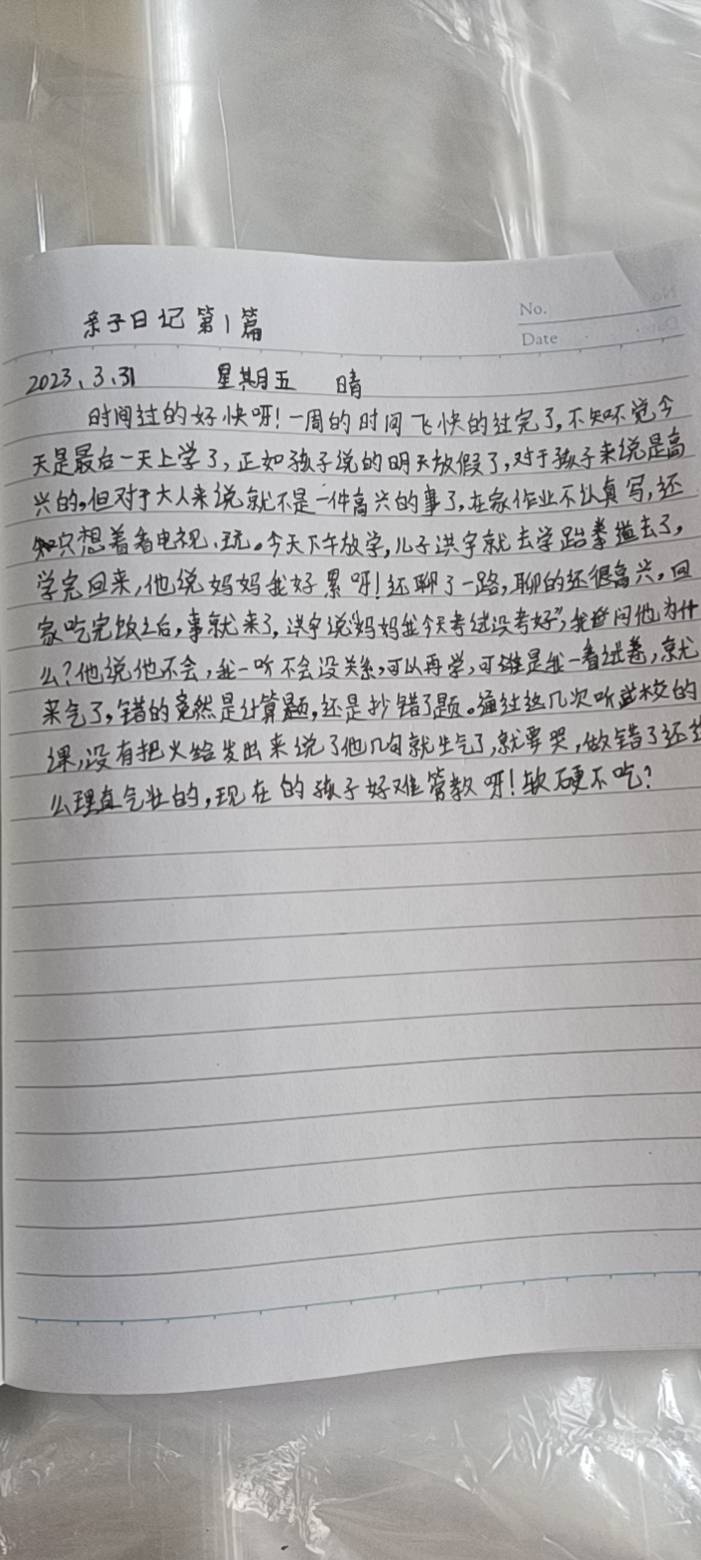 No.
Date
亲子日记第1篇
2023、3.31 星期五 晴
时间过的好快呀！一周的时间飞快的过完了，不知不觉今
天是最后一天上学了，正如孩子说的明天放假了，对于孩子来说是高
兴的，但对于大人来说就不是一件高兴的事了，在家作业不认真写，还
只想着看电视、玩。今天下午放学，儿子洪宇就去学跆拳道去了，
学完回来，他说妈妈我好累呀！还聊了一路，聊的还很高兴，回
家吃完饭之后，事就来了，洪宇说“妈妈我今天考试没考好”，我问他为什
么？他说他不会，我一听不会没关系，可以再学，可谁是我一看试卷，就
来气了，错的竟然是计算题，还是抄错了题。通过这几次听学校的
课，没有把火给发出来说了他几句就生气了，就要哭，做错了还这
么理直气壮的，现在的孩子好难管教呀！软硬不吃？